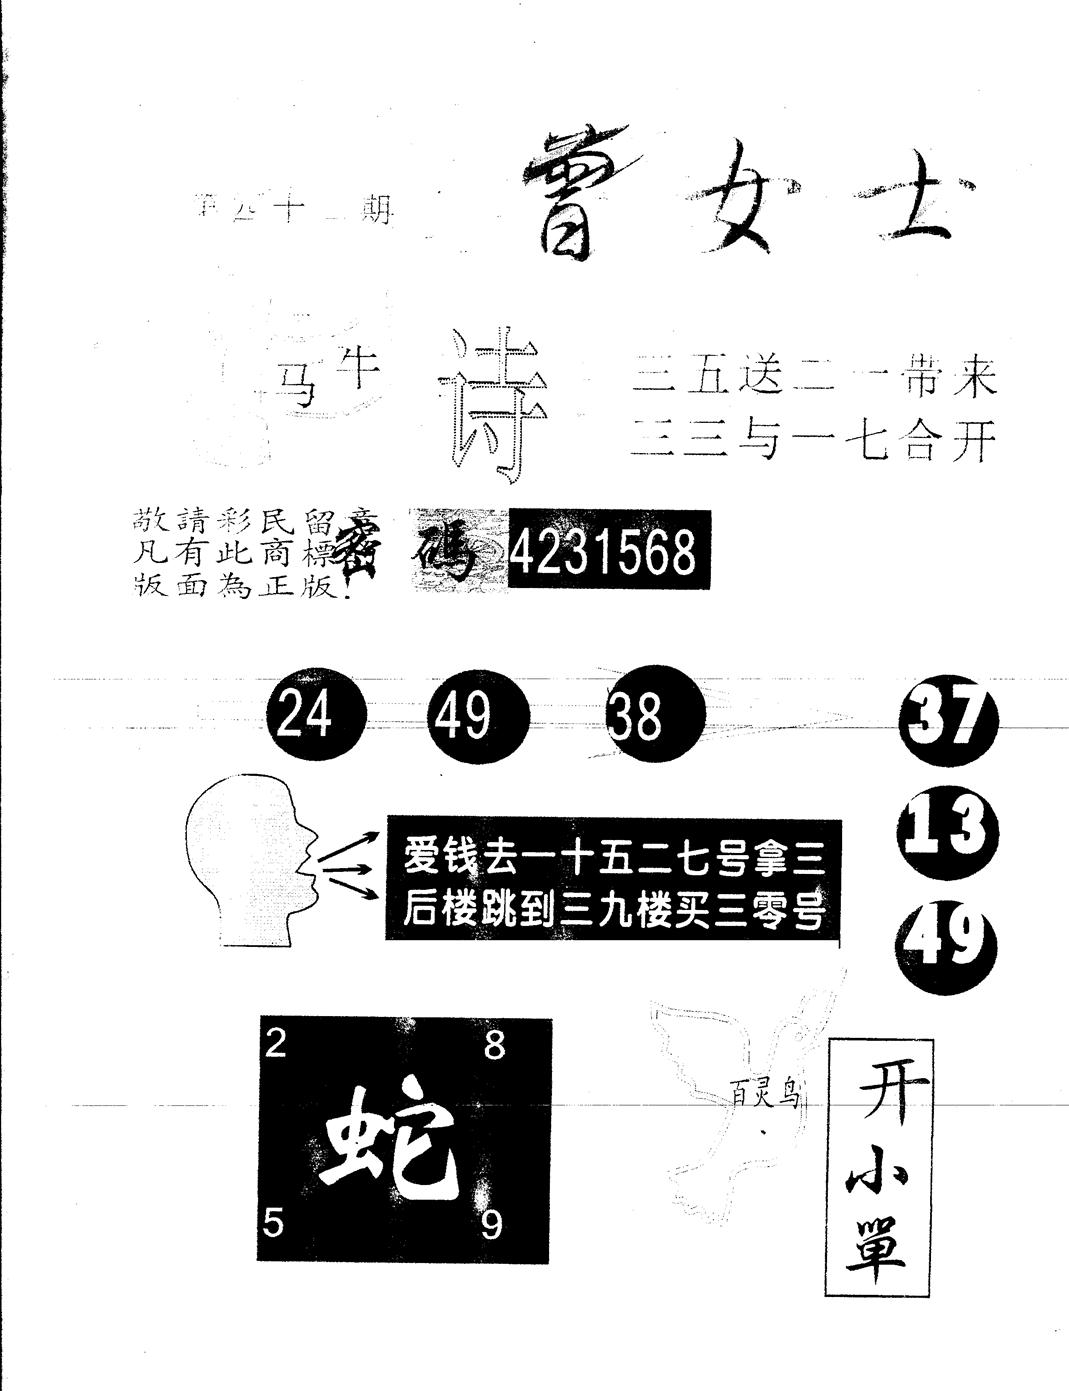 曾女士
第四十二期
马 牛
诗
三五送二一带来
三三与一七合开
敬請彩民留意
凡有此商標
版面為正版!
密碼 4231568
24 49 38
37
13
49
爱钱去一十五二七号拿三
后楼跳到三九楼买三零号
2 8
蛇
5 9
百灵鸟
开小單